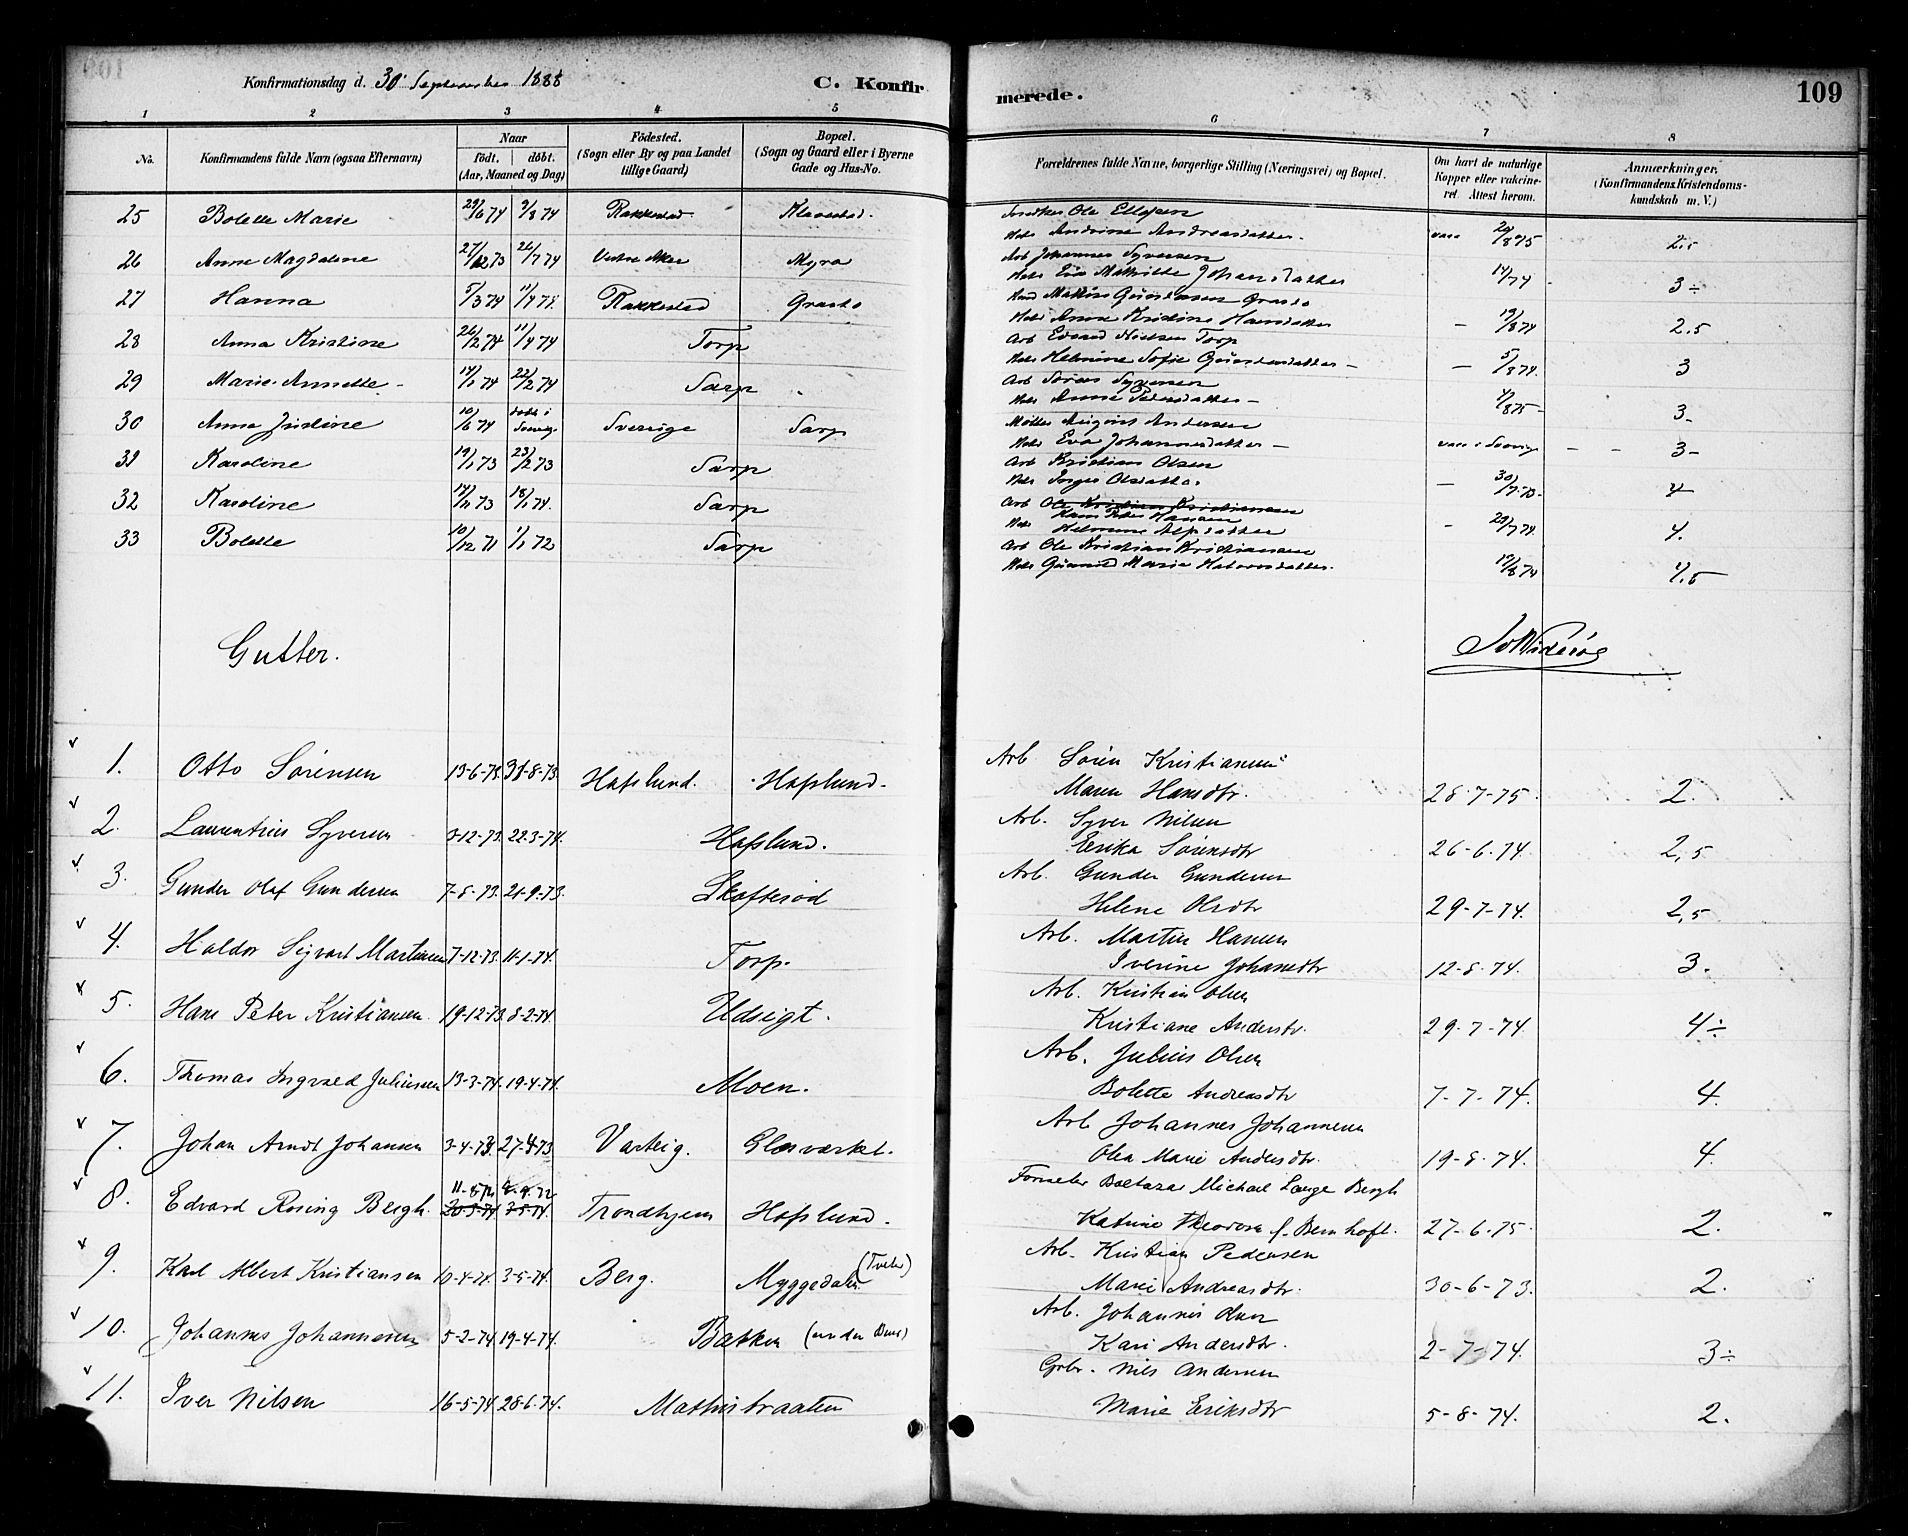 Konfirmationsdag d. 30 September 1888
C. Konfir
merede.
109
1 2 3 4 5 6 7 8
No.
Konfirmandens fulde Navn (ogsaa Efternavn)
Naar
født. | døbt.
(Aar, Maaned og Dag)
Fødested.
(Sogn eller By og paa Landet
tillige Gaard)
Bopæl.
(Sogn og Gaard eller i Byerne
Gade og Hus-No.
Forældrenes fulde Navne, borgerlige Stilling (Næringsvei) og Bopæl.
Om havt de naturlige
Kopper eller vakcine-
ret. Attest herom.
Anmærkninger.
(Konfirmandens Kristendoms-
kundskab m. V.)
25 Bolette Marie 29/6 74 9/8 74 Rakkestad Klavestad. Ole Ellefsen
Andrine Andreasdatter. vacc 20/8 75 2.5
26 Anna Magdalene 27/12 73 26/7 74 Vestre Aker Myra Arb Johannes Syversen
Eva Mathilde Johansdatter 14/7 74 3÷
27 Hanna 5/3 74 11/4 74 Rakkestad Mathias Gundersen
Anna Kristine Hansdatter — 19/8 74 2.5
28 Anna Kristine 26/2 74 11/4 74 Torp Arb Edvard Nielsen Torp
Helmine Sofie Gundersdatter — — 5/8 74. 3
29 Marie Annette 14/1 74 22/2 74 Sarp Arb Søren Syversen
Anne Pedersdatter — 4/8 75 3-
30 Anna Justine 10/6 74 døbt i Sverige Sverrige Sarp Møller August Andersen
Eva Johannesdatter — vacc i Sverige 3-
31 Karoline 19/1 73 23/2 73 Sarp Arb Kristian Olsen
Olsdatter — 30/7 73 4
32 Karoline 14/11 73 18/1 74. Sarp Arb Ole Kristian Kristiansen
Hans Peter Hansen
Helmine - 29/7 74. 4.
33 Bolette 10/12 71 1/1 72 Sarp Arb Ole Kristian Kristiansen
Gunnild Marie Halvorsdatter. 12/8 74 4,5
Gutter.
1. Otto Sørensen 13-6-73. 31-8-73. Hafslund. Hafslund. Arb Søren Kristiansen
Maren Hansdtr. 28-7-75. 2.
2. Laurentius Syversen 3-12-73. 22-3-74. Hafslund. Arb. Syver Nilsen
Erika Sørensdtr 26-6-74. 2,5
3. Gunder Olaf Gundersen 7-8-73. 21-9-73. Skaftesød Arb. Gunder Gundersen
Helene Olsdtr 29-7-74. 2,5
4. Haldor Sigvart Martinsen 7-12-73. 11-1-74. Torp. Arb. Martin Hansen
Iverine Johansdtr 12-8-74. 3.
5. Hans Peter Kristiansen. 19-12-73. 8-2-74 Udsigt. Arb. Kristian Olsen
Kristiane Andersdtr. 29-7-74. 4÷
6. Thomas Ingvald Juliussen 13-3-74. 19-4-74. Moen. Arb. Julius Olsen
Bolette Andreasdtr 7-7-74. 4.
7. Johan Arndt Johansen 3-4-73. 27-4-73 Varteig. Glasværket. Arb Johannes Johannesen
Olea Marie Andersdtr. 19-8-74. 4.
8. Edvard Rosing Bergh. 11-8-72 8-9-72 20-3-74 3-5-74. Trondhjem Hafslund. Baltazar Michael Lange Bergh
Katrine Theodora f. Bernhoft. 27-6-75. 2.
9. Karl Albert Kristiansen 10-4-74. 3-5-74. Berg. Myggedalen (Tveter) Arb. Kristian Pedersen
Marie Andreasdtr. 30-6-73. 2.
10. Johannes Johannesen 5-2-74. 19-4-74. Bakken (under ) Arb. Johannes Olsen
Kari Andersdtr. 2-7-74. 3÷
11. Iver Nilsen 16-5-74. 28-6-74. Mathisbraaten Gbr. Nils Andersen
Marie Eriksdtr 5-8-74. 2.